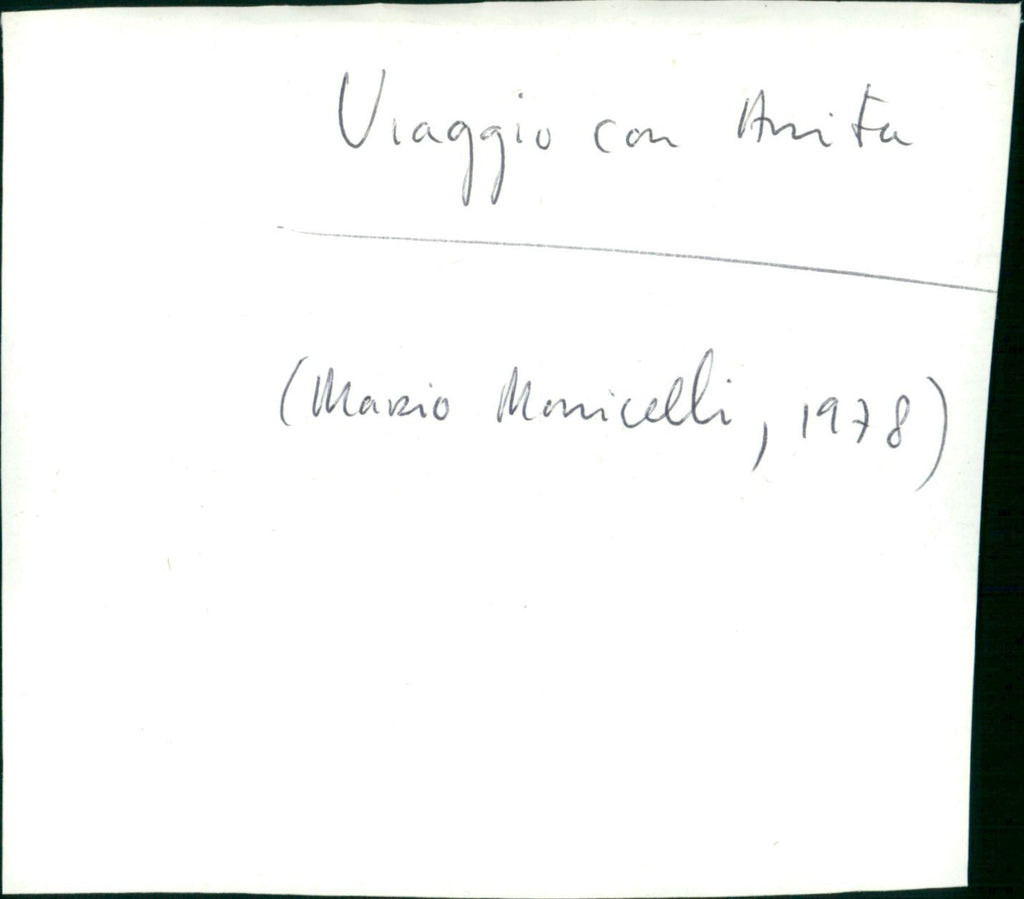 Viaggio con Anita
(Mario Monicelli, 1978)